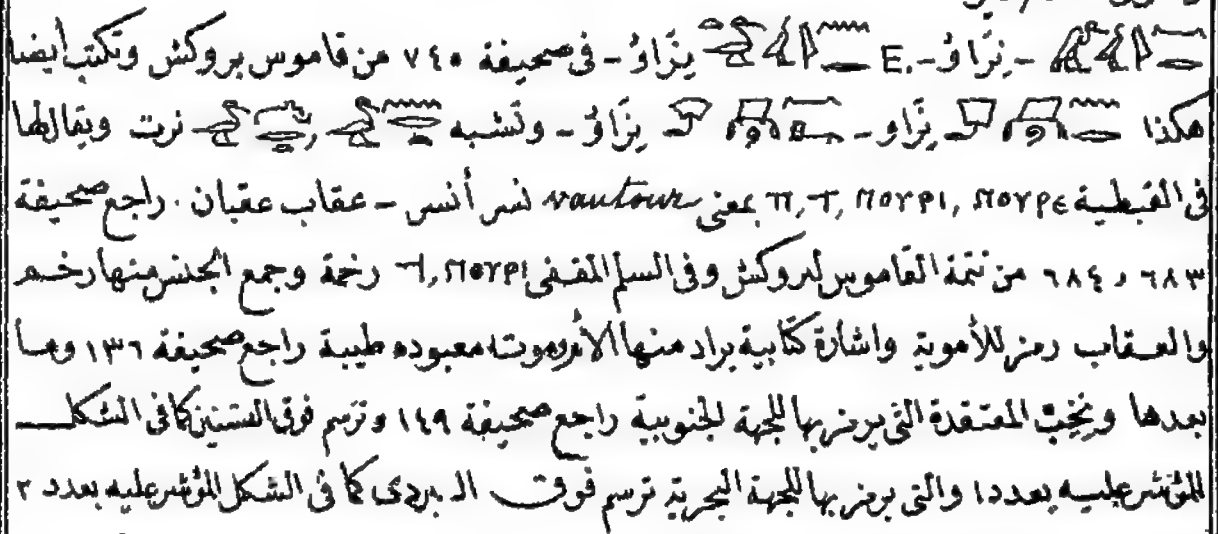 - نِزَاوُ - E. نِزَاوُ - فى صحيفة ٧٤٥ من قاموس بروكش وتكتب أيضا
هكذا نِزَاو - نِزَاوُ - وتشبه نرت ويقال لها
فى القبطية ⲡ,ⲧ, ⲛⲟⲩⲣⲓ, ⲛⲟⲩⲣⲉ بمعنى vautour نسر أنسر - عقاب عقبان . راجع صحيفة
٦٨٣ و ٦٨٤ من تتمة القاموس لبروكش وفى السلم المقفى ⲧ, ⲛⲟⲩⲣⲓ رخمة وجمع الجنس منها رخم
والعقاب رمز للأموية واشارة كتابية يراد منها الأم وموت معبوده طيبة راجع صحيفة ١٣٦ وما
بعدها ونخب المعتقدة التى يرمز بها للجهة الجنوبية راجع صحيفة ١٤٩ وترسم فوق السنتين كما فى الشكل
المؤشر عليه بعدد ١ والتى يرمز بها للجهة البحرية ترسم فوق البردى كما فى الشكل المؤشر عليه بعدد ٢